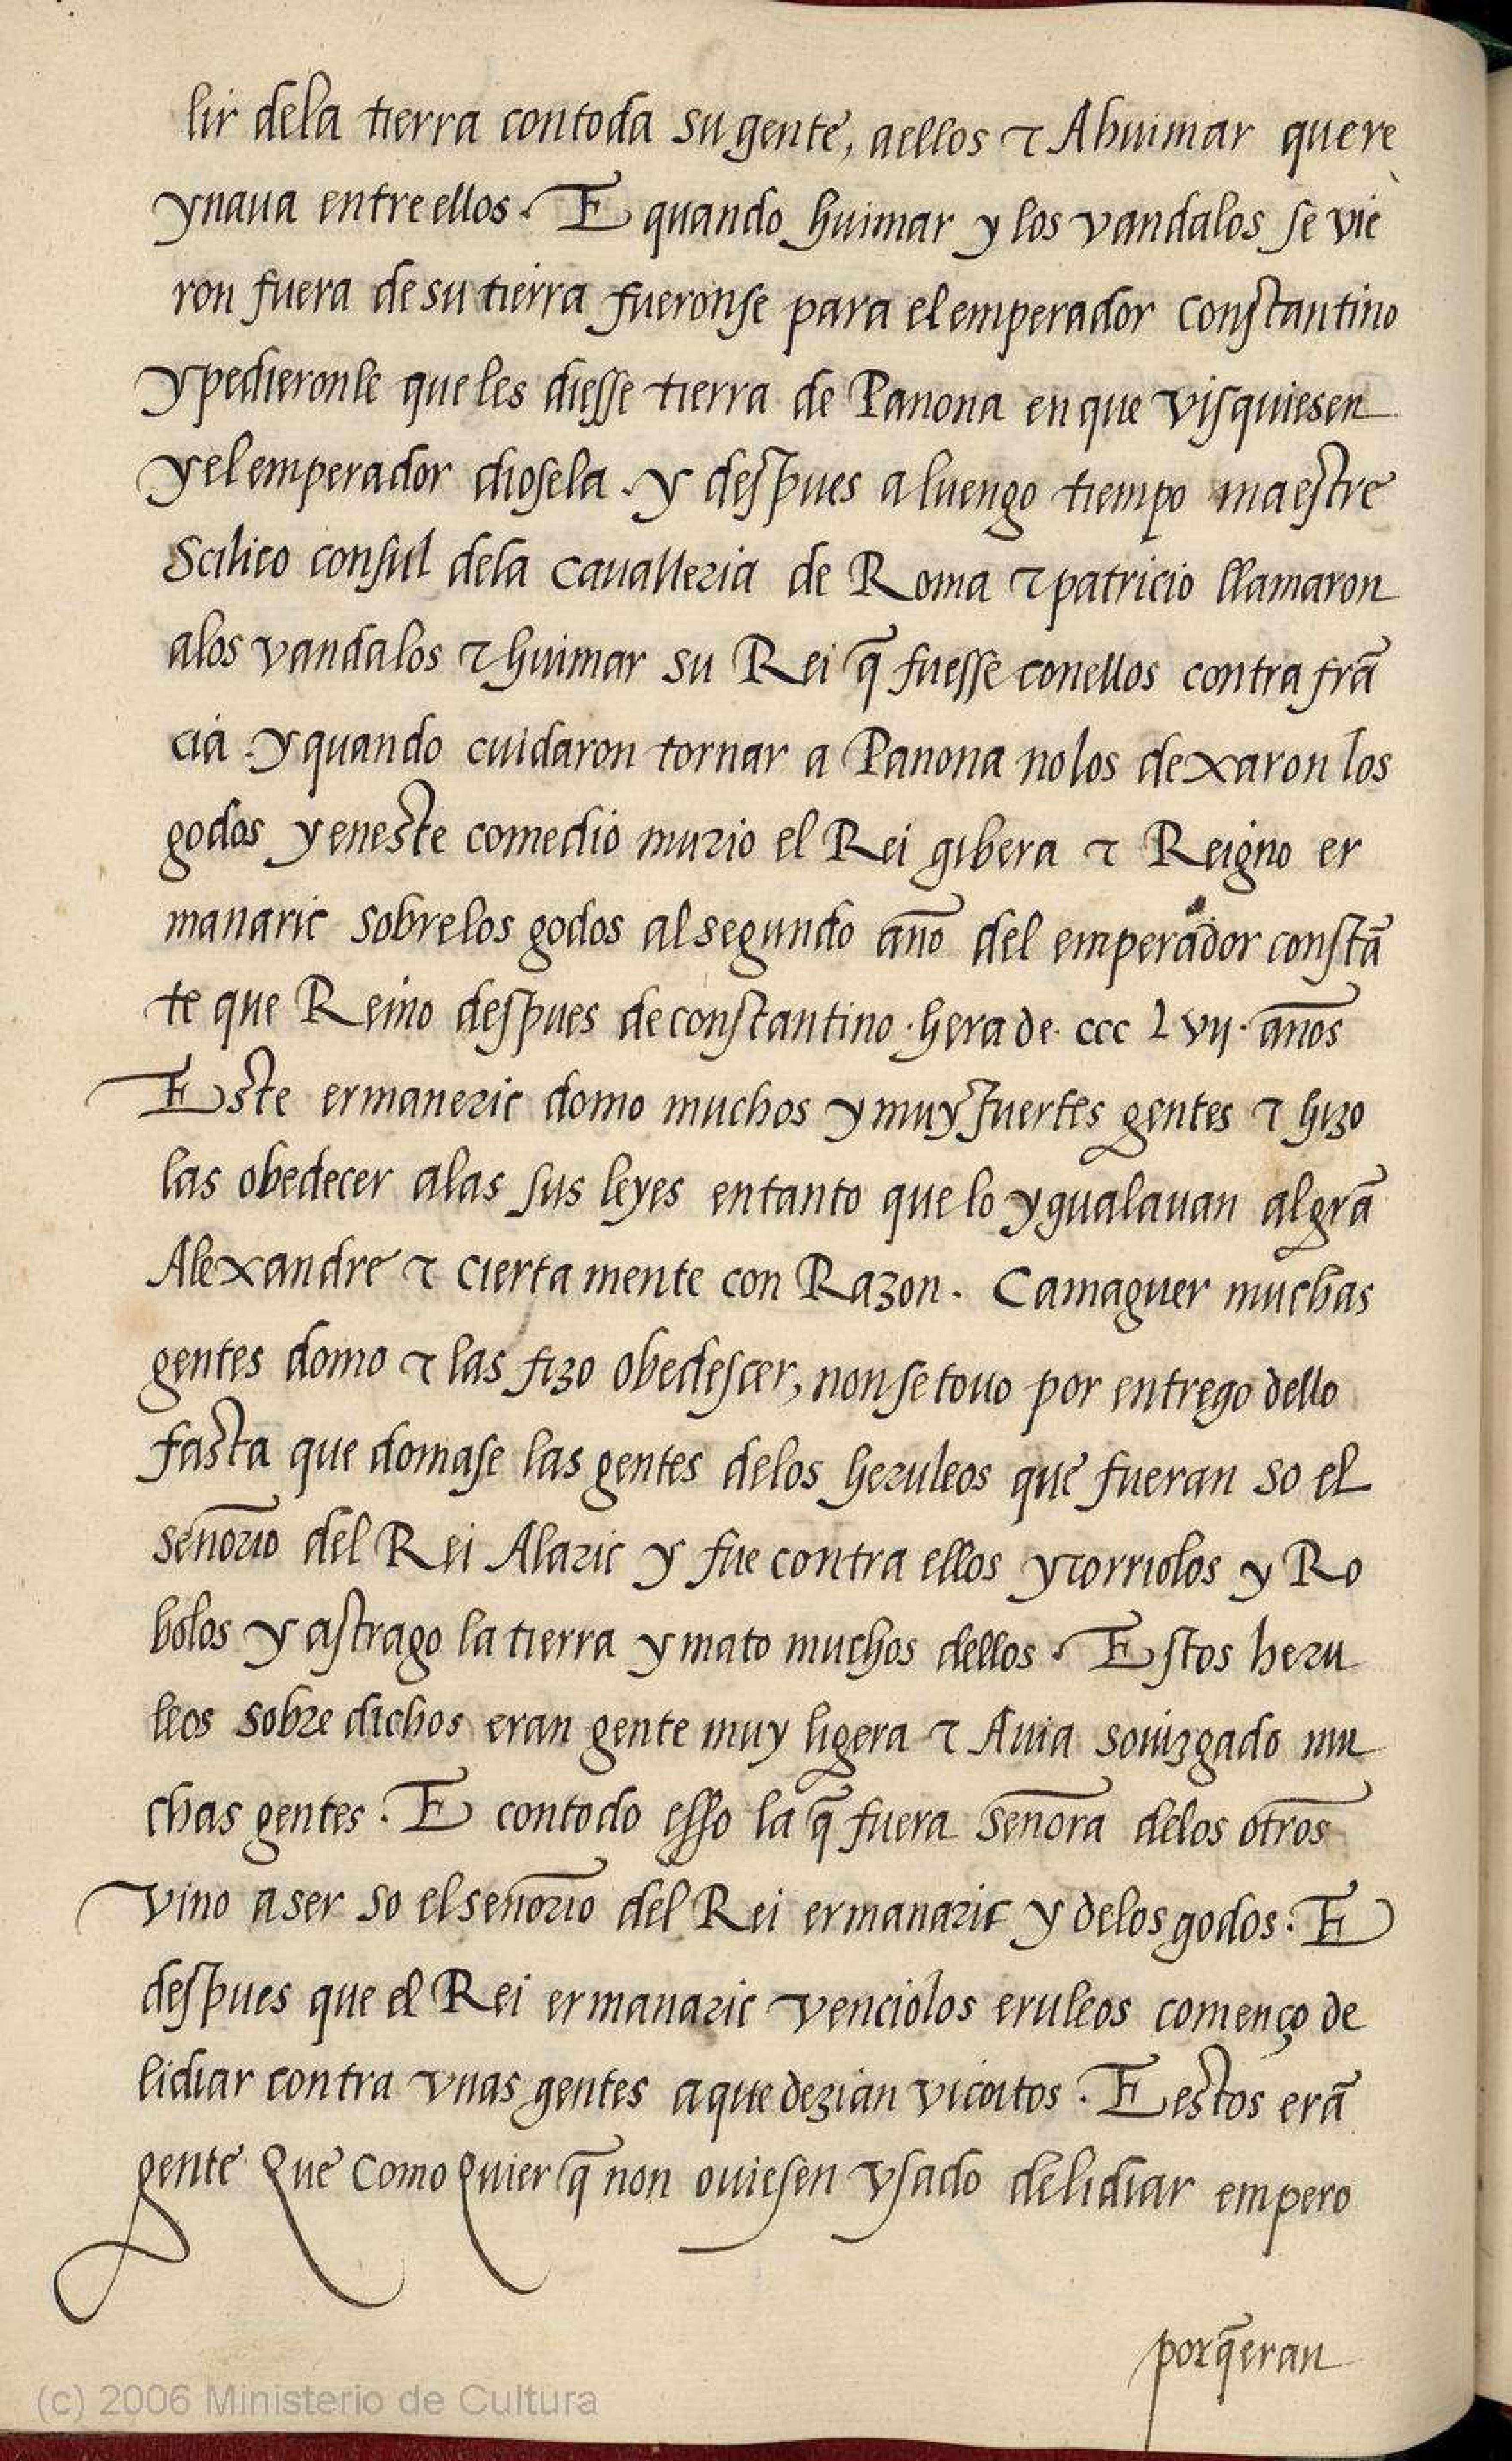 lir dela tierra contoda su gente, aellos ⁊ Ahuimar quere
ynaua entre ellos. E quando huimar y los vandalos se vie
ron fuera de su tierra fueronse para el emperador Constantino
y pedieronle que les diesse tierra de Panona en que visquiesen
y el emperador diosela. y despues a luengo tiempo maestre
Scilico consul dela cavalleria de Roma ⁊ patricio llamaron
alos vandalos ⁊ huimar su Rei q̃ fuesse conellos contra frã
cia. y quando cuidaron tornar a Panona nolos dexaron los
godos y eneste comedio murio el Rei gibera ⁊ Reigno er
manaric sobrelos godos al segundo año del emperador constã
te que Reino despues de constantino. hera de. ccc Lvij. años
Este ermaneric domo muchos y muy fuertes gentes ⁊ hizo
las obedecer alas sus leyes entanto que lo ygualauan al grã
Alexandre ⁊ cierta mente con Razon. Camaguer muchas
gentes domo ⁊ las fizo obedescer, non se touo por entrego dello
fasta que domase las gentes delos heruleos que fueran so el
señorio del Rei Alaric y fue contra ellos y torriolos y Ro
bolos y astrago la tierra y mato muchos dellos. Estos heru
leos sobre dichos eran gente muy ligera ⁊ Auia souizgado mu
chas gentes. E contodo esso la q̃ fuera señora delos otros
vino a ser so el señorio del Rei ermanaric y delos godos. E
despues que el Rei ermanaric venciolos eruleos començo de
lidiar contra vnas gentes a que dezian vicoitos. E estos erã
gente Que como Quier q̃ non ouiesen vsado de lidiar empero
porq̃ eran
(c) 2006 Ministerio de Cultura